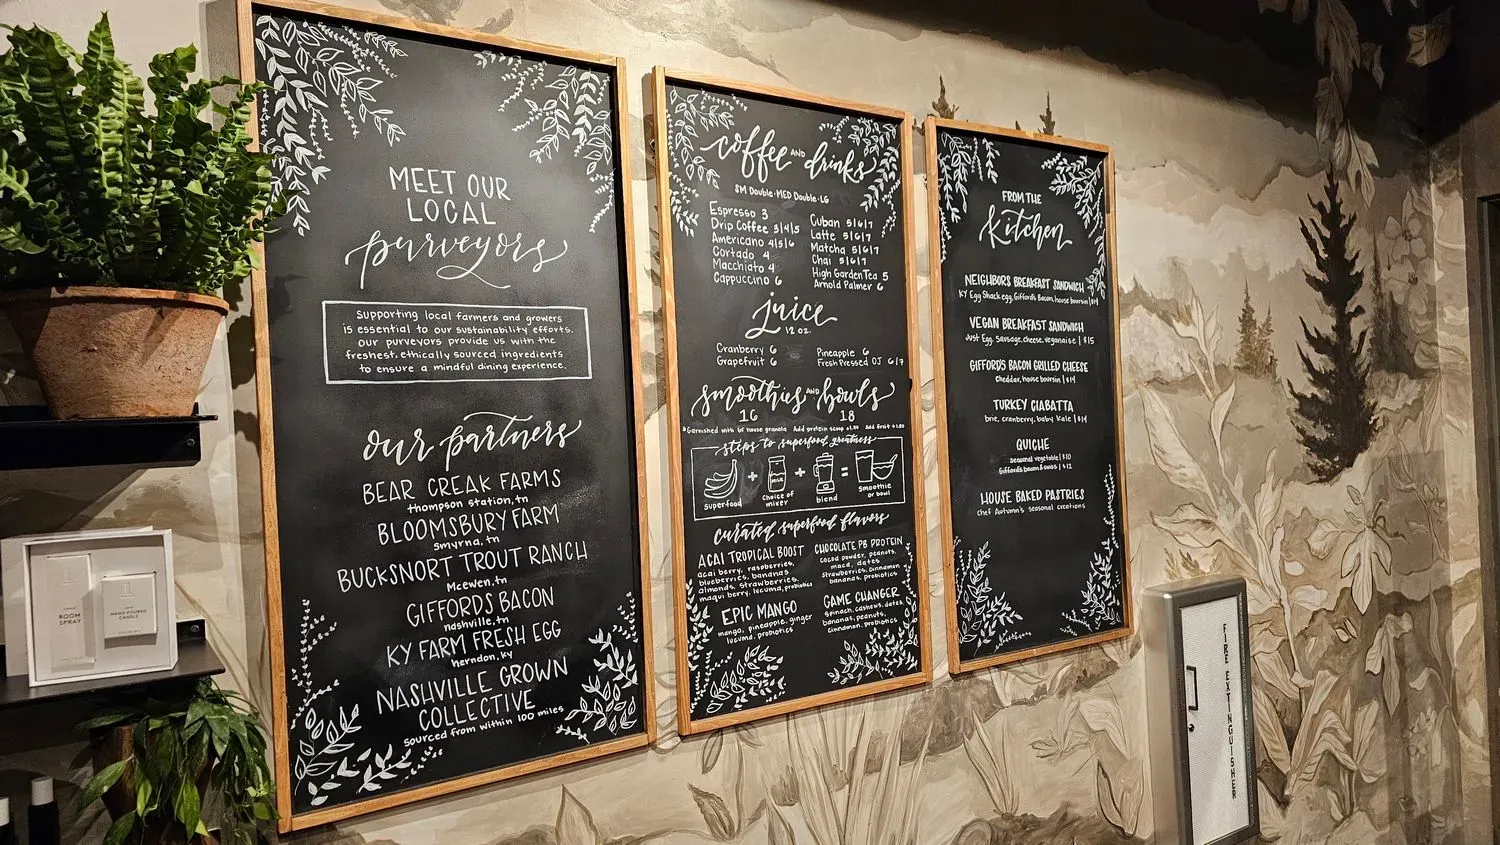 MEET OUR
LOCAL
purveyors
Supporting local farmers and growers
is essential to our sustainability efforts.
our purveyors provide us with the
freshest, ethically sourced ingredients
to ensure a mindful dining experience.
our partners
BEAR CREAK FARMS
thompson station, tn
BLOOMSBURY FARM
smyrna, tn
BUCKSNORT TROUT RANCH
McEwen, tn
GIFFORDS BACON
nashville, tn
KY FARM FRESH EGG
herndon, ky
NASHVILLE GROWN
COLLECTIVE
sourced from within 100 miles
coffee AND drinks
SM Double · MED Double · LG
Espresso 3
Drip Coffee 3/4/5
Americano 4/5/6
Cortado 4
Macchiato 4
Cappuccino 6
Cuban 5/6/7
Latte 5/6/7
Matcha 5/6/7
Chai 5/6/7
High Garden Tea 5
Arnold Palmer 6
juice
12 oz.
Cranberry 6
Grapefruit 6
Pineapple 6
Fresh Pressed OJ 6/7
smoothies AND bowls
16 18
*Garnished with GF house granola Add protein scoop Add fruit
steps to superfood greatness
superfood + Choice of mixer + blend = Smoothie or bowl
curated superfood flavors
ACAI TROPICAL BOOST
acai berry, raspberries,
blueberries, bananas
almonds, strawberries,
maqui berry, lucuma, probiotics
EPIC MANGO
mango, pineapple, ginger
lucuma, probiotics
CHOCOLATE PB PROTEIN
cocoa powder, peanuts,
maca, dates
strawberries, cinnamon
bananas, probiotics
GAME CHANGER
spinach, cashews, dates,
bananas, peanuts,
cinnamon, probiotics
FROM THE
Kitchen
NEIGHBORS BREAKFAST SANDWICH
KY Egg Shack egg, Giffords Bacon, house boursin | $14
VEGAN BREAKFAST SANDWICH
Just Egg, sausage, cheese, veganaise | $15
GIFFORD'S BACON GRILLED CHEESE
Cheddar, house boursin | $14
TURKEY CIABATTA
brie, cranberry, baby kale | $14
QUICHE
seasonal vegetable | $10
Giffords bacon & swiss | $12
HOUSE BAKED PASTRIES
chef Autumn's seasonal creations
ROOM
SPRAY
HAND POURED
CANDLE
FIRE EXTINGUISHER